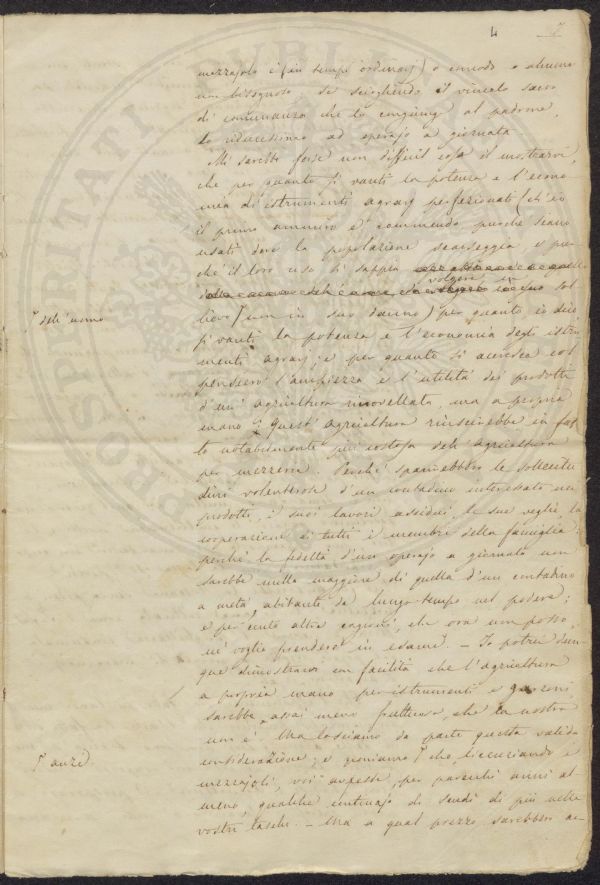 4 7
mezzajolo i (in tempi ordinarj) o comodo o almeno
non bisognoso se sciogliendo il vincolo sacro
di comunanza che lo congiunge al padrone,
lo riducessimo ad operajo a giornata
Mi sarebbe forse non difficil cosa il mostrarvi,
che per quanto si vanti la potenza e l'econo-
mia di istrumenti agrarj perfezionati (ch'io
il primo ammiro e commendo purchè siano
usati dove la popolazione scarseggia, e pur-
chè il loro uso si sappia
volgere in suo sol-
lievo ( non in suo danno) per quanto io dico
⌈ dell'uomo
si vanti la potenza e l'economia degli istru-
menti agrarj; e per quanto si accresca col
pensiero l'ampiezza e l'utilità dei prodotti
d'un' agricoltura rinovellata, ma a propria
mano; quest'agricoltura riuscirebbe in fat-
to notabilmente più costosa dell'Agricoltura
per mezzeria. Perchè sparirebbero le sollecitu-
dini volenterose d'un contadino interessato nei
prodotti, i suoi lavori assidui, le sue veglie, la
cooperazione di tutti i membri della famiglia:
perchè la fedeltà d'un operajo a giornata non
sarebbe nulla maggiore di quella d'un contadino
a metà abitante da lungo tempo nel podere;
e per cento altre cagioni, che ora non posso
nè voglio prendere in esame. — Io potrei dun-
que dimostrarvi con facilità che l'agricoltura
a propria mano per istrumenti e garzoni
sarebbe assai meno fruttuosa, che la nostra
non è. Ma lasciamo da parte questa valida
considerazione; e poniamo ⌈ che, licenziando i
⌈ anzi
mezzajoli, voi aveste, per parecchi anni al-
meno, qualche centinajo di scudi di più nelle
vostre tasche. — Ma a qual prezzo sarebbero ac-